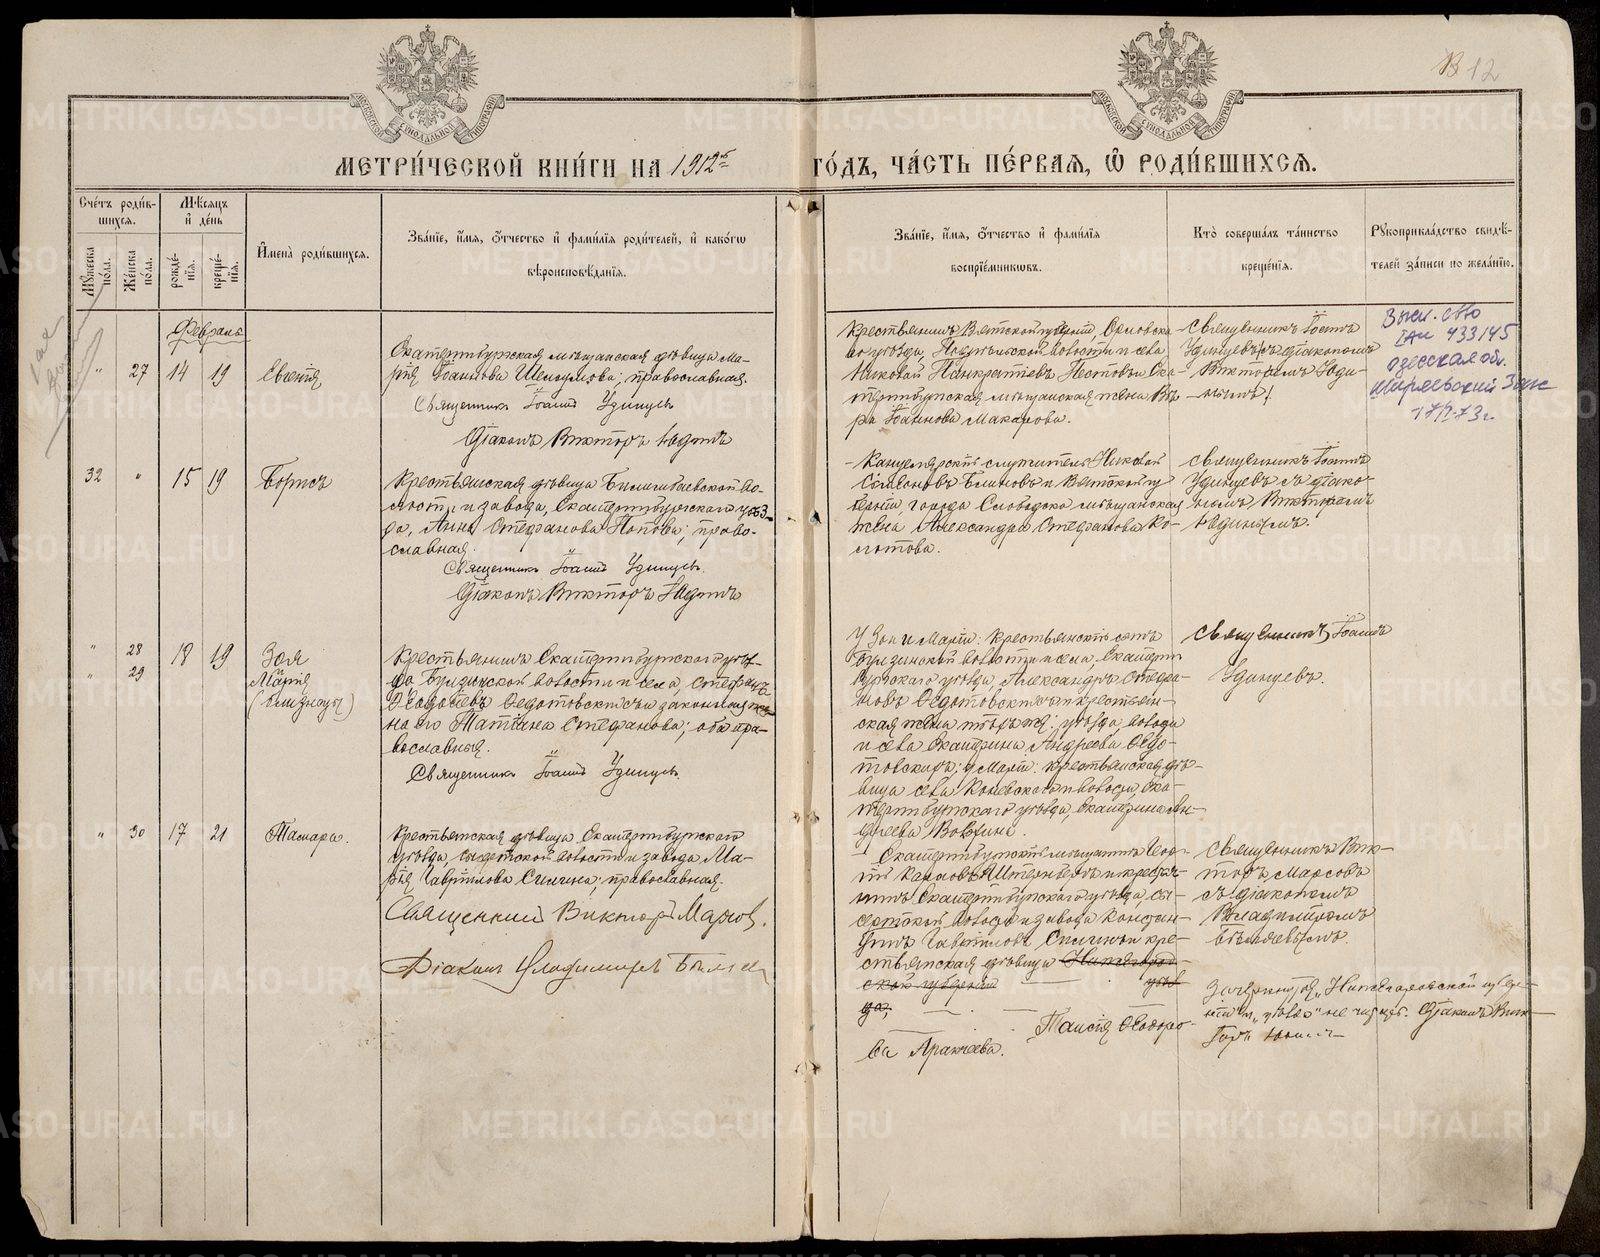 12
МЕТРИ́ЧЕСКОЙ КНИ́ГИ НА 1912 й ГО́ДЪ, ЧА́СТЬ ПЕ́РВАЯ, Ѡ РОДИ́ВШИХСЯ.
Сче́тъ роди́в-
шихся.
Мꙋжеска по́ла.
Же́нска по́ла.
Мѣ́сяцъ
и҆ де́нь
рожде́-
нїѧ.
креще́-
нїѧ.
И҆мена̀ роди́вшихся.
Зва́нїе, и҆́мя, ѻ҆́тчество и҆ фами́лїѧ роди́телей, и҆ како́гѡ
вѣроисповѣ́данїѧ.
Зва́нїе, и҆́мя, ѻ҆́тчество и҆ фами́лїѧ
воспрїе́мниковъ.
Кто̀ соверша́лъ та́инство
креще́нїѧ.
Рꙋкоприкла́дство свидѣ́-
телей за́писи по жела́нїю.
Февраль
" 27 14 19 Евгенія,
Екатеринбургская мѣщанская дѣвица Ма-
рія Іоаннова ; православная.
Священникъ Іоаннъ Удинцевъ
Діаконъ Викторъ Юдинъ
Крестьянинъ Вятской губерніи, Орловска-
го уѣзда, волости и села,
Николай Панкратіевъ и Ека-
теринбургская мѣщанская жена Вѣ-
ра Іоаннова Макарова.
Священникъ Іоаннъ
Удинцевъ съ діакономъ
Викторомъ Юди-
нымъ.
433145
Одесская обл.
Ширяевский Загс
32 " 15 19 Борисъ
Крестьянская дѣвица Билимбаевской во-
лости и завода, Екатеринбургскаго уѣз-
да, Анна Стефанова Попова; право-
славная.
Священникъ Іоаннъ Удинцевъ.
Діаконъ Викторъ Юдинъ
Канцелярскій служитель Николай
Симеоновъ Блиновъ и Вятской гу-
берніи, города Слободска мѣщанская
жена Александра Стефанова Ко-
лотова.
Священникъ Іоаннъ
Удинцевъ съ діако-
номъ Викторомъ
Юдинымъ.
" 28 18 19 Зоя
" 29 Марія
(близнецы)
Крестьянинъ Екатеринбургскаго уѣз-
да волости и села, Стефанъ
Ѳедотовскихъ и законная же-
на его Татіана Стефанова; оба пра-
вославные.
Священникъ Іоаннъ Удинцевъ.
У Зои и Маріи: крестьянскій сынъ
волости и села, Екатерин-
бургскаго уѣзда, Александръ Стефа-
новъ Ѳедотовскихъ и крестьян-
ская жена тѣхъ же: уѣзда, волости
и села Екатерина Андреева Ѳедо-
товскихъ; у Маріи: крестьянская дѣ-
вица села Коневскаго и волости, Ека-
теринбургскаго уѣзда, Екатерина Ан-
дреева
Священникъ Іоаннъ
Удинцевъ.
" 30 17 21 Тамара.
Крестьянская дѣвица Екатеринбургскаго
уѣзда, Сысертской волости и завода, Ма-
рія Гаврилова Силина; православная.
Священникъ Викторъ
Діаконъ Владиміръ
Екатеринбургскій мѣщанинъ Геор-
гій Карповъ и крестья-
нинъ Екатеринбургскаго уѣзда, Сы-
сертской волости и завода Констан-
тинъ Гавриловъ Силинъ и кре-
стьянская дѣвица Нижегород-
ской губерніи уѣз-
да,
Таисія Ѳеодоро-
ва Аракчеева.
Священникъ Вик-
торъ
съ діакономъ
Владиміромъ
Бѣляевымъ.
Зачеркнутое „Нижегородской губер-
ніи и „уѣзда" не читать. Діаконъ Вик-
торъ Юдинъ